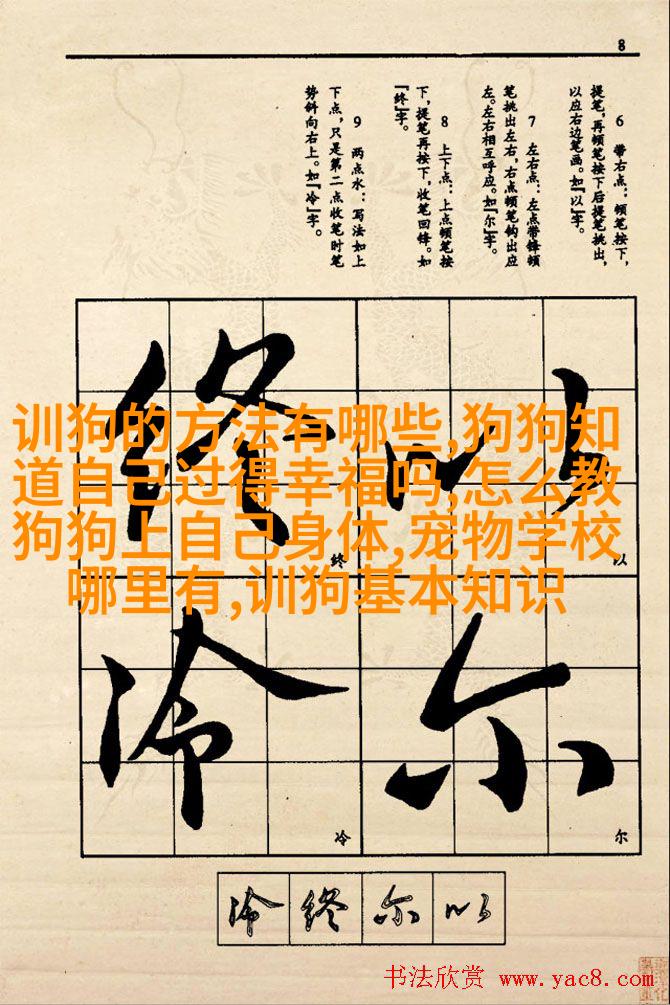 8
6 带右点：顿笔按下，
提笔，再顿笔按下后提笔挑出，
以应右边笔画。如“以”字。
7 左右点：左点带锋顿
笔挑出左右，右点顿笔钩出应
左。左右相互呼应。如“尔”字。
8 上下点：上点顿笔按
下，提笔再按下，收笔回锋。如
“终”字。
9 两点水：写法如上
下点，只是第二点收笔时笔
势斜向右上。如“冷”字。
训狗的方法有哪些,狗狗知
道自己过得幸福吗,怎么教
狗狗上自己身体,宠物学校
哪里有,训狗基本知识
以
以
尔
尔
终
终
冷
冷
冷终尔以
书法欣赏 www.yac8.com